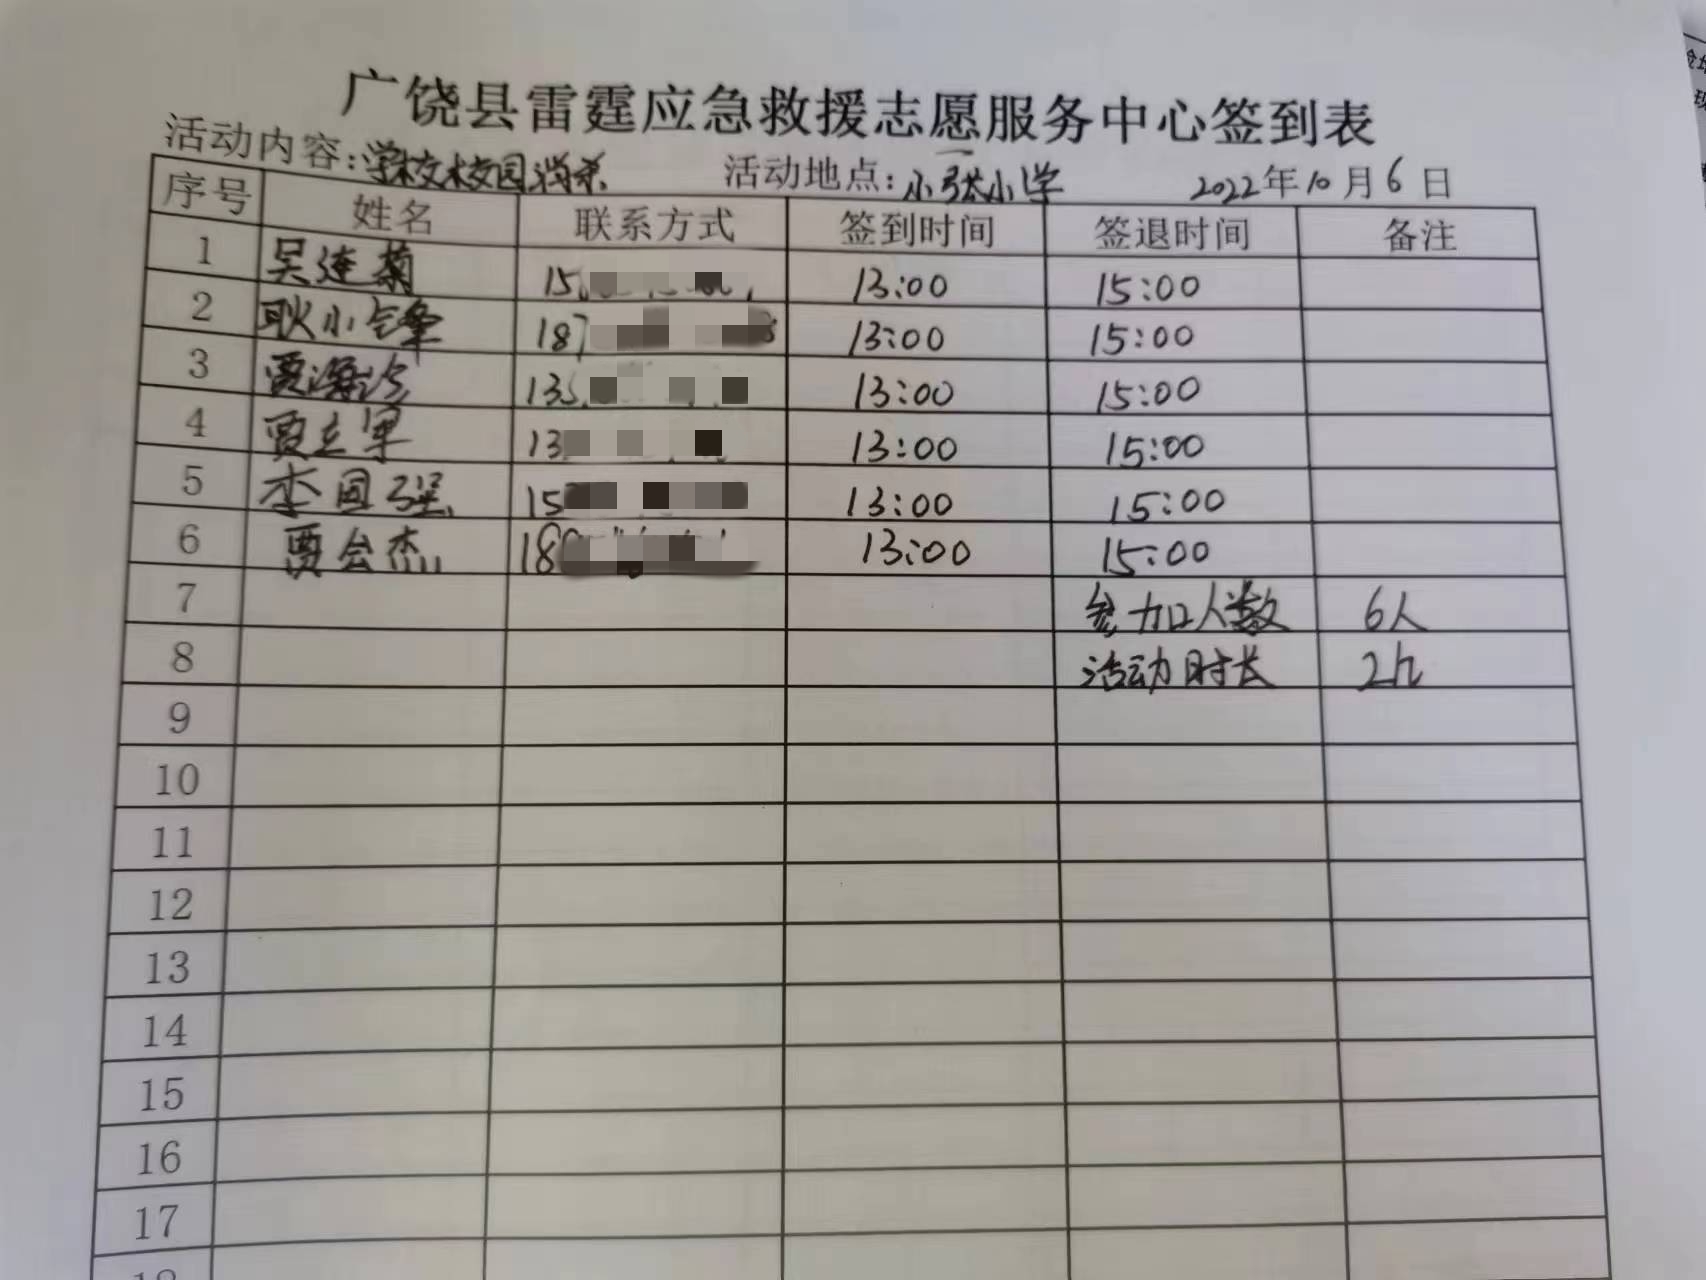 广饶县雷霆应急救援志愿服务中心签到表
活动内容:学校校园消杀 活动地点:小张小学 2022年10月6日
序号 姓名 联系方式 签到时间 签退时间 备注
1 吴连菊 15 13:00 15:00
2 耿小锋 187 13:00 15:00
3 贾 13 13:00 15:00
4 贾立军 13 13:00 15:00
5 李国强 15 13:00 15:00
6 贾会杰 18 13:00 15:00
7 参加人数 6人
8 活动时长 2h
9
10
11
12
13
14
15
16
17